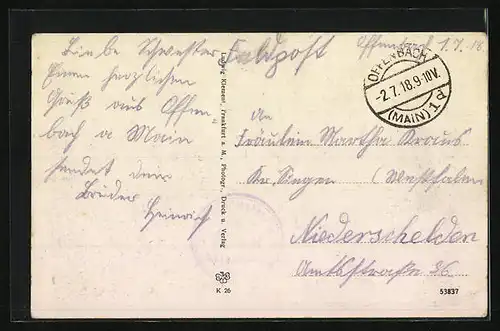 Feldpost
Offenbach 1.7.18
Liebe Schwester
Einen herzlichen
Gruß aus Offen
bach a Main
sendet dein
Bruder
Heinrich
OFFENBACH
-2.7.18.9-10V.
(MAIN) 1 d
An
Fräulein Martha Kraus
Kr. Siegen (Westfalen
Niederschelden
Amtsstraße 36
Ludwig Klement, Frankfurt a. M., Photogr., Druck u. Verlag
K 26
53837